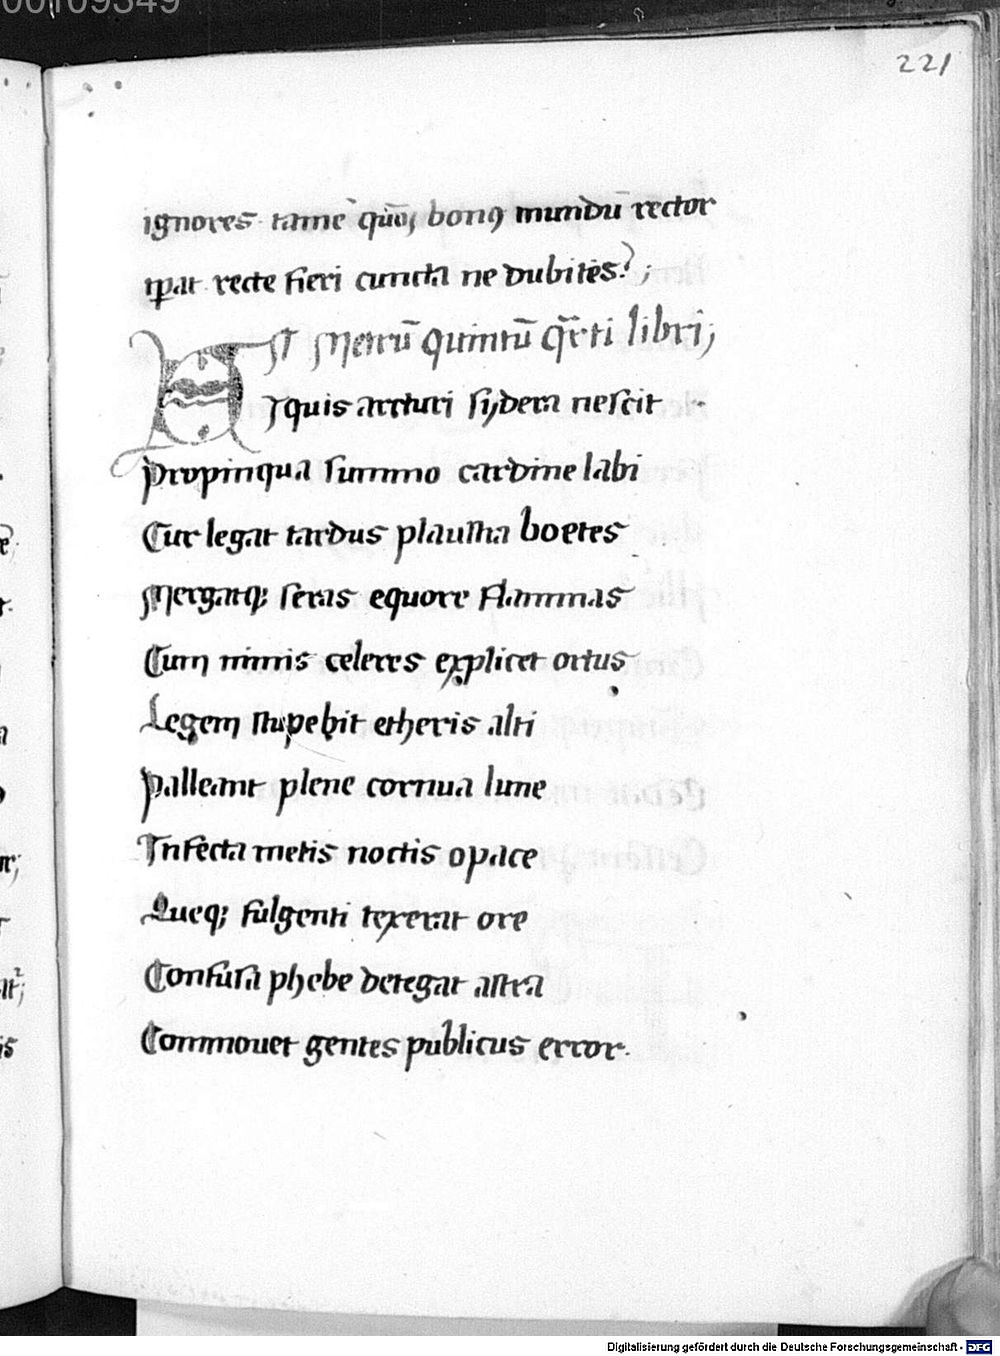 00109349
221
ignores tamē quō; bonꝰ mundū rector
tꝑat recte fieri cuncta ne dubites?;
Est Metrū quintū q̄rti libri;
Siquis arcturi sydera nescit
Propinqua summo cardine labi
Cur legat tardus plaustra boetes
Mergatq; seras equore flammas
Cum nimis celeres explicet ortus
Legem stupebit etheris alti
Palleant plene cornua lune
Infecta metis noctis opace
Queq; fulgenti texerat ore
Confusa phebe detegat astra
Commouet gentes publicus error.
Digitalisierung gefördert durch die Deutsche Forschungsgemeinschaft - DFG